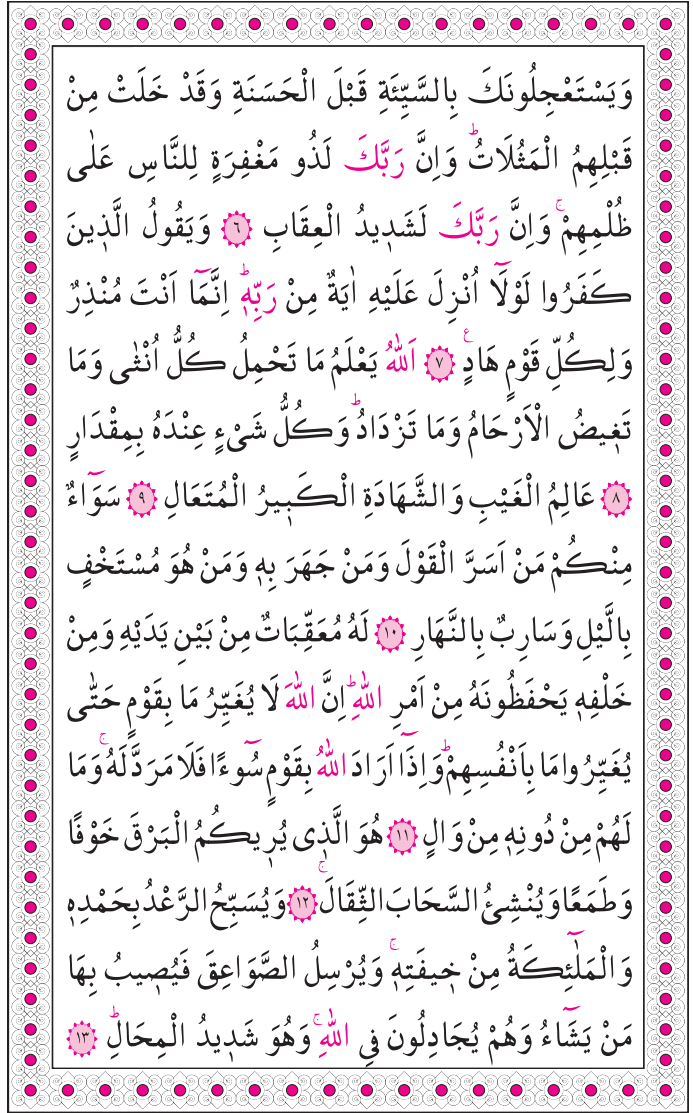 وَيَسْتَعْجِلُونَكَ بِالسَّيِّئَةِ قَبْلَ الْحَسَنَةِ وَقَدْ خَلَتْ مِنْ
قَبْلِهِمُ الْمَثُلَاتُۜ وَاِنَّ رَبَّكَ لَذُو مَغْفِرَةٍ لِلنَّاسِ عَلٰى
ظُلْمِهِمْۚ وَاِنَّ رَبَّكَ لَشَدٖيدُ الْعِقَابِ ﴿٦﴾ وَيَقُولُ الَّذٖينَ
كَفَرُوا لَوْلَٓا اُنْزِلَ عَلَيْهِ اٰيَةٌ مِنْ رَبِّهٖؕ اِنَّمَٓا اَنْتَ مُنْذِرٌ
وَلِكُلِّ قَوْمٍ هَادٍࣖ ﴿٧﴾ اَللّٰهُ يَعْلَمُ مَا تَحْمِلُ كُلُّ اُنْثٰى وَمَا
تَغٖيضُ الْاَرْحَامُ وَمَا تَزْدَادُؕ وَكُلُّ شَىْءٍ عِنْدَهُ بِمِقْدَارٍ
﴿٨﴾ عَالِمُ الْغَيْبِ وَالشَّهَادَةِ الْكَبٖيرُ الْمُتَعَالِ ﴿٩﴾ سَوَٓاءٌ
مِنْكُمْ مَنْ اَسَرَّ الْقَوْلَ وَمَنْ جَهَرَ بِهٖ وَمَنْ هُوَ مُسْتَخْفٍ
بِالَّيْلِ وَسَارِبٌ بِالنَّهَارِ ﴿١٠﴾ لَهُ مُعَقِّبَاتٌ مِنْ بَيْنِ يَدَيْهِ وَمِنْ
خَلْفِهٖ يَحْفَظُونَهُ مِنْ اَمْرِ اللّٰهِؕ اِنَّ اللّٰهَ لَا يُغَيِّرُ مَا بِقَوْمٍ حَتّٰى
يُغَيِّرُوا مَا بِاَنْفُسِهِمْؕ وَاِذَٓا اَرَادَ اللّٰهُ بِقَوْمٍ سُٓوءًا فَلَا مَرَدَّ لَهُۚ وَمَا
لَهُمْ مِنْ دُونِهٖ مِنْ وَالٍ ﴿١١﴾ هُوَ الَّذٖى يُرٖيكُمُ الْبَرْقَ خَوْفًا
وَطَمَعًا وَيُنْشِئُ السَّحَابَ الثِّقَالَۚ ﴿١٢﴾ وَيُسَبِّحُ الرَّعْدُ بِحَمْدِهٖ
وَالْمَلٰٓئِكَةُ مِنْ خٖيفَتِهٖۚ وَيُرْسِلُ الصَّوَاعِقَ فَيُصٖيبُ بِهَا
مَنْ يَشَٓاءُ وَهُمْ يُجَادِلُونَ فِى اللّٰهِۚ وَهُوَ شَدٖيدُ الْمِحَالِؕ ﴿١٣﴾